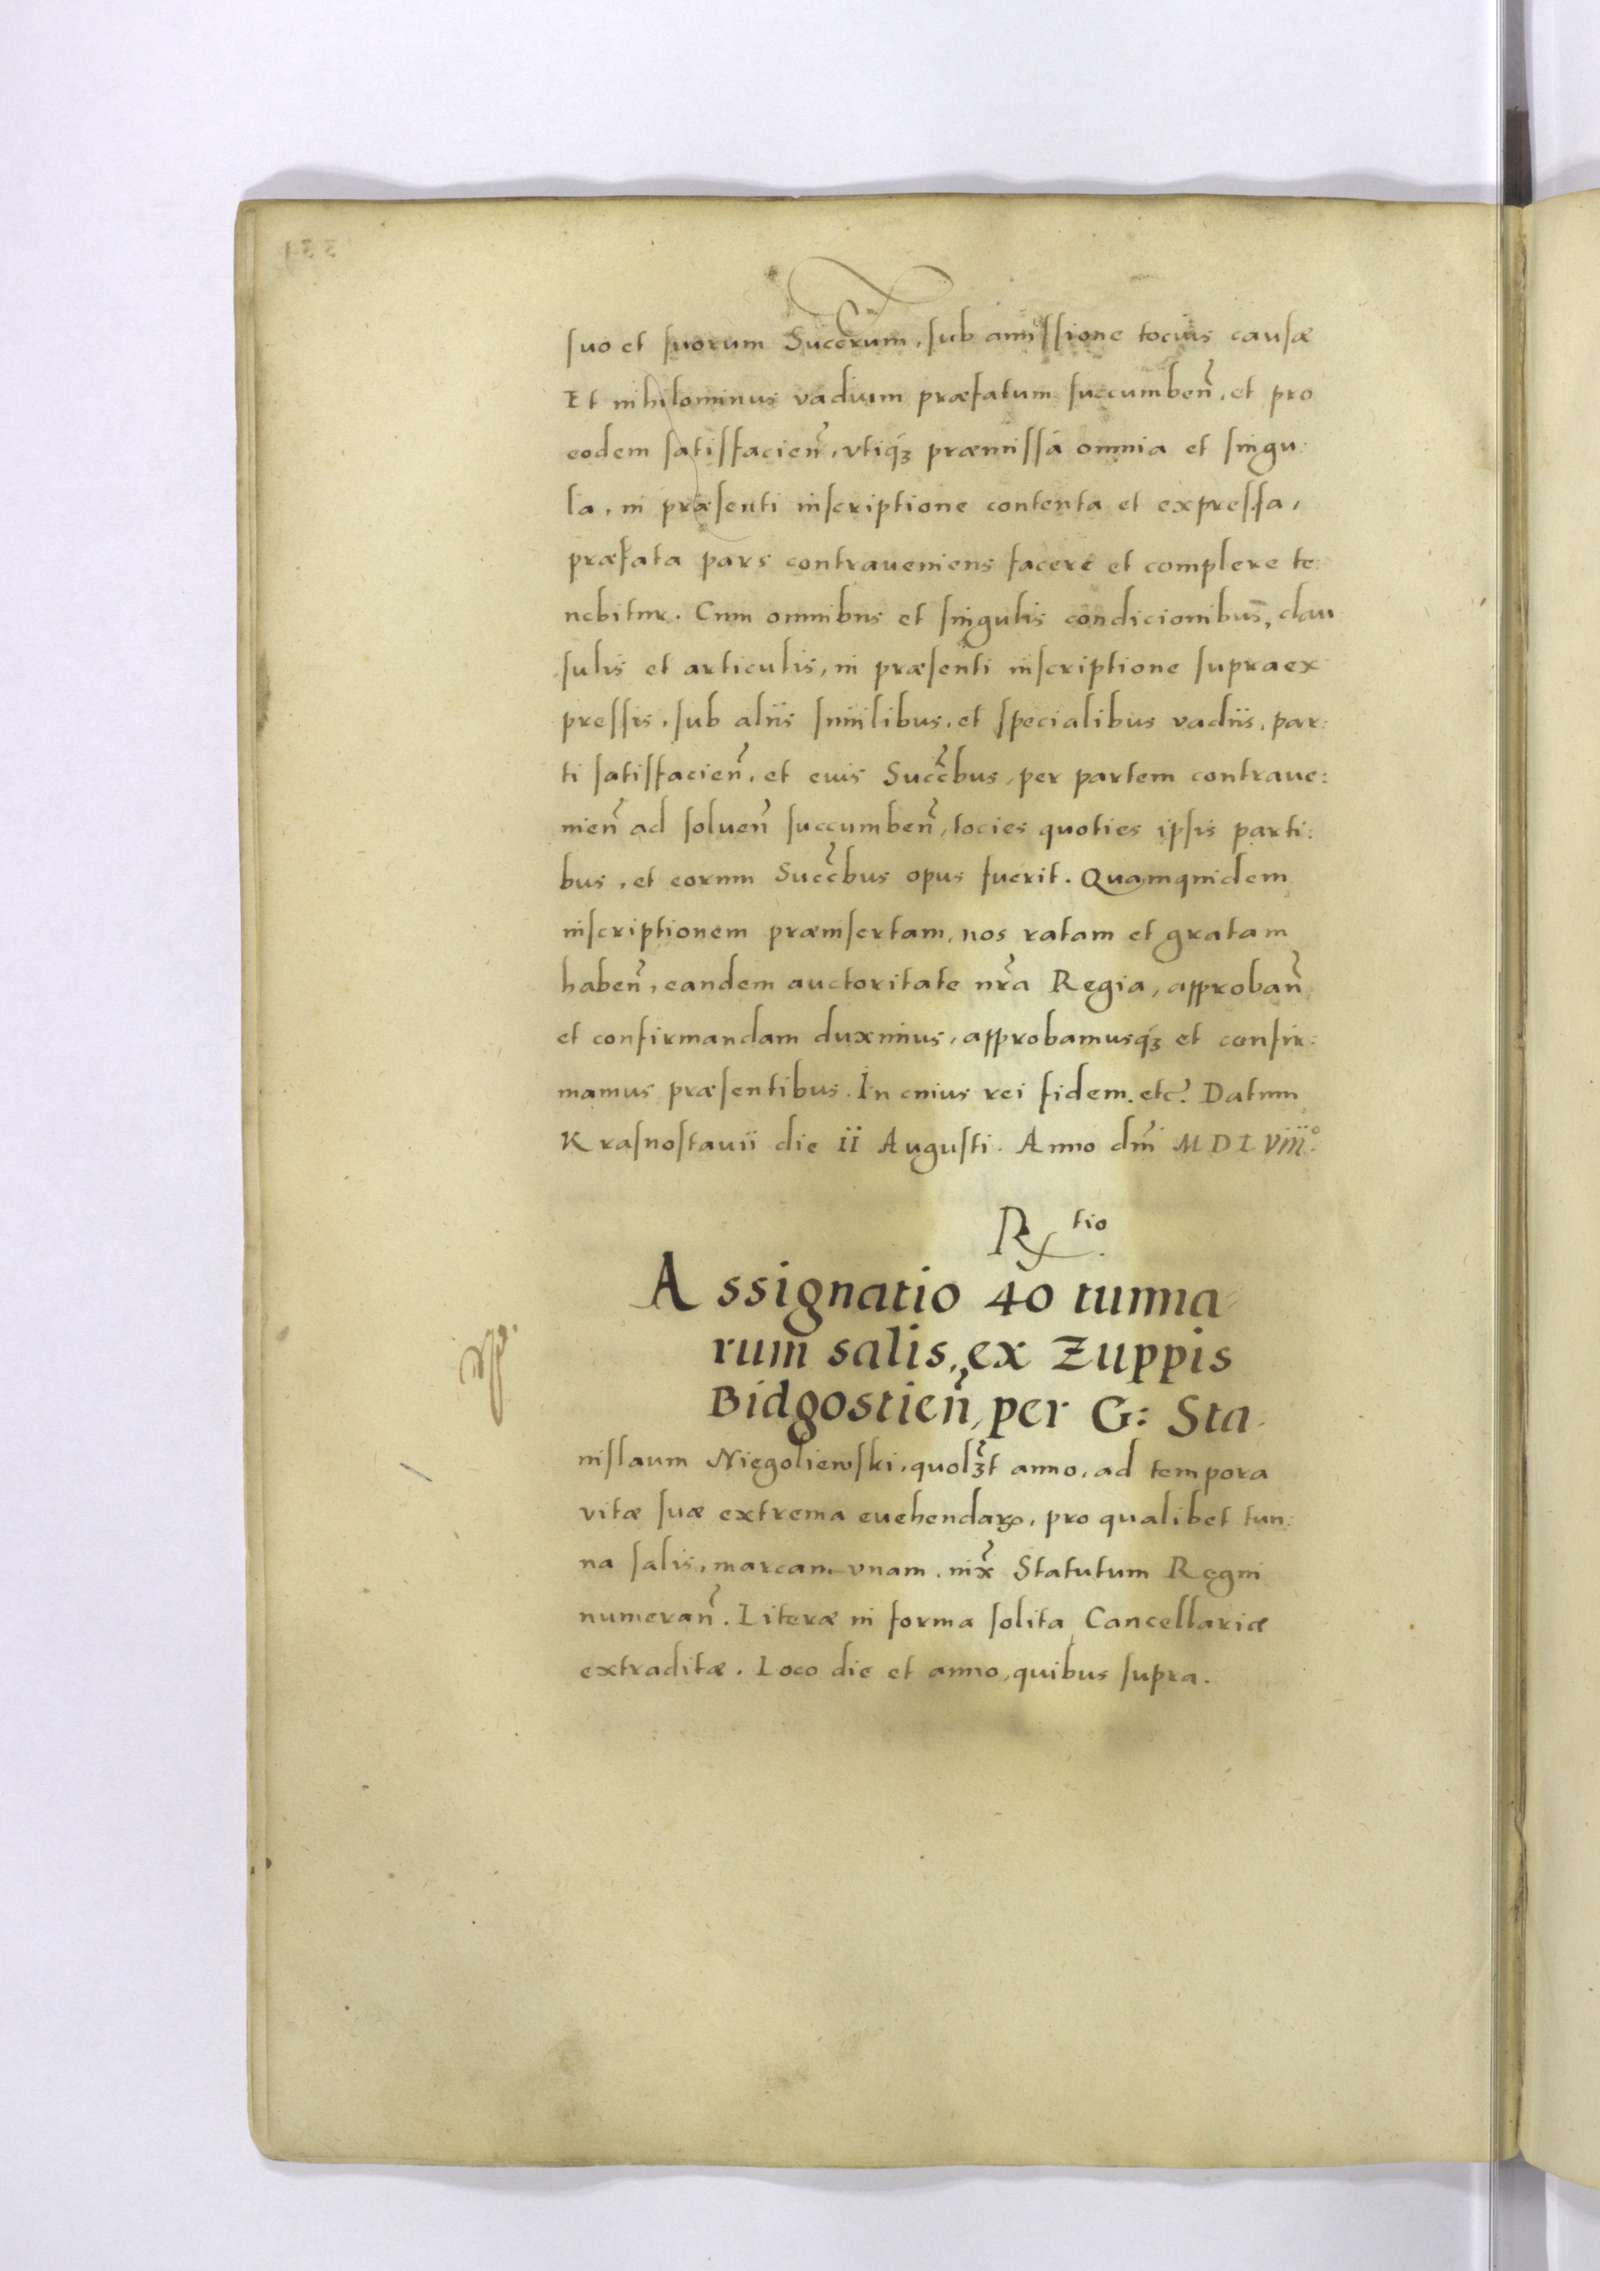 suo et suorum Succrum, sub amissione tocius causæ
Et nihilominus vadium præfatum succumben̄, et pro
eodem satisfacien̄, vtiq́ꝫ præmissa omnia et singu:
la, in præsenti inscriptione contenta et expressa,
præfata pars contraueniens facere et complere te:
nebitur. Cum omnibus et singulis condicionibus, clau
sulis et articulis, in præsenti inscriptione supraex
pressis, sub aliis similibus, et specialibus vadiis, par:
ti satisfacien̄, et eius Succ̄bus, per partem contraue:
nien̄ ad soluen̄ succumben̄, tocies quoties ipsis parti:
bus, et eorum Succ̄bus opus fuerit. Quamquidem
inscriptionem præinsertam, nos ratam et gratam
haben̄, eandem auctoritate nr̄a Regia, approban̄
et confirmandam duximus, approbamusq́ꝫ et confir:
mamus præsentibus. In cuius rei fidem. etc. Datum
Krasnostauii die II Augusti. Anno dm̄ MDLVIII°
R tio
Assignatio 40 tunna
rum salis, ex Zuppis
Bidgostien̄, per G: Sta
nislaum Niegoliewski, quolꝫt anno, ad tempora
vitæ suæ extrema euehendaꝝ, pro qualibet tun:
na salis, marcam vnam, iux̄ Statutum Regni
numeran̄. Literæ in forma solita Cancellariæ
extraditæ. Loco die et anno, quibus supra.